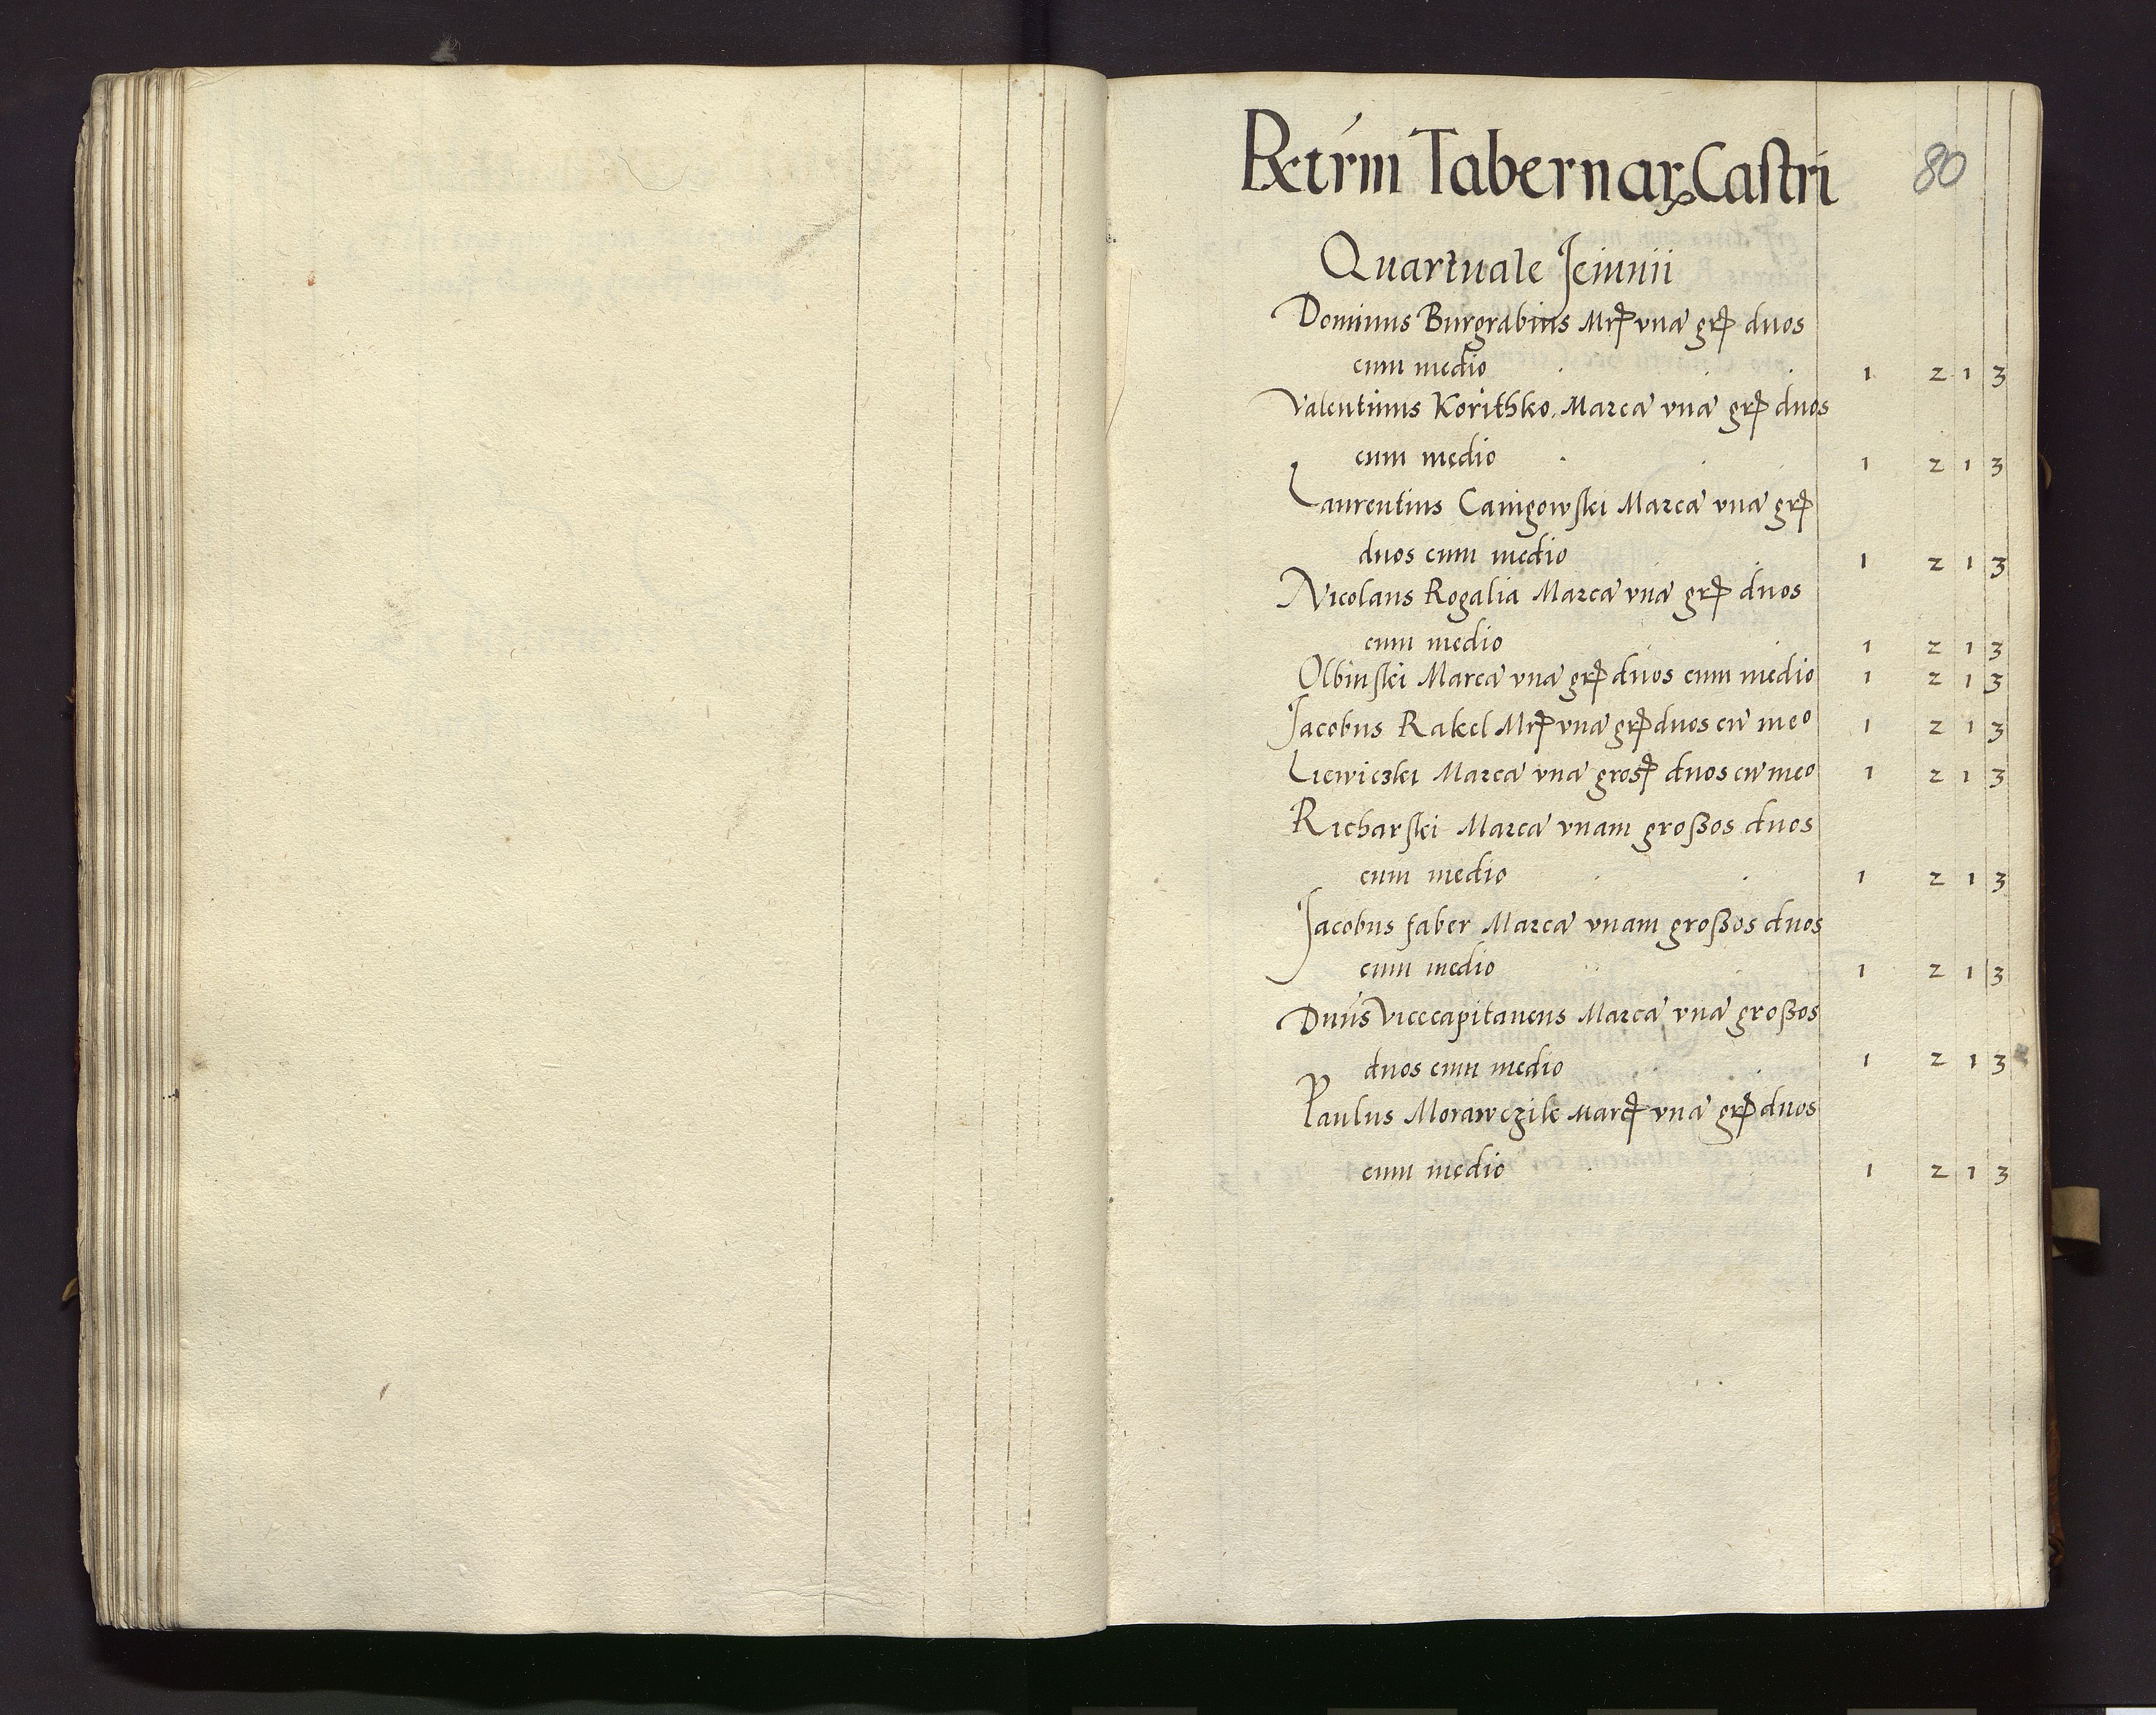 Rxtrm Tabernaꝝ Castri
80
Quartuale Jeiunii
Dominus Burgrabius Mrꝭ vnā grꝭ duos
cum medio 1 2 1 3
Valentinus Korithko Marcā vnā grꝭ duos
cum medio 1 2 1 3
Laurentius Canigowskei Marcā vnā grꝭ
duos cum medio 1 2 1 3
Nicolaus Rogalia Marcā vnā grꝭ duos
cum medio 1 2 1 3
Olbinskei Marcā vnā grꝭ duos cum medio 1 2 1 3
Jacobus Rakel Mrꝭ vnā grꝭ duos cū meo 1 2 1 3
Liewiczkei Marcā vnā grosꝭ duos cū meo 1 2 1 3
Richarskei Marcā vnam großos duos
cum medio 1 2 1 3
Jacobus faber Marcā vnam großos duos
cum medio 1 2 1 3
Dnūs Vicecapitaneus Marcā vnā großos
duos cum medio 1 2 1 3
Paulus Morawczik Marcꝭ vnā grꝭ duos
cum medio 1 2 1 3